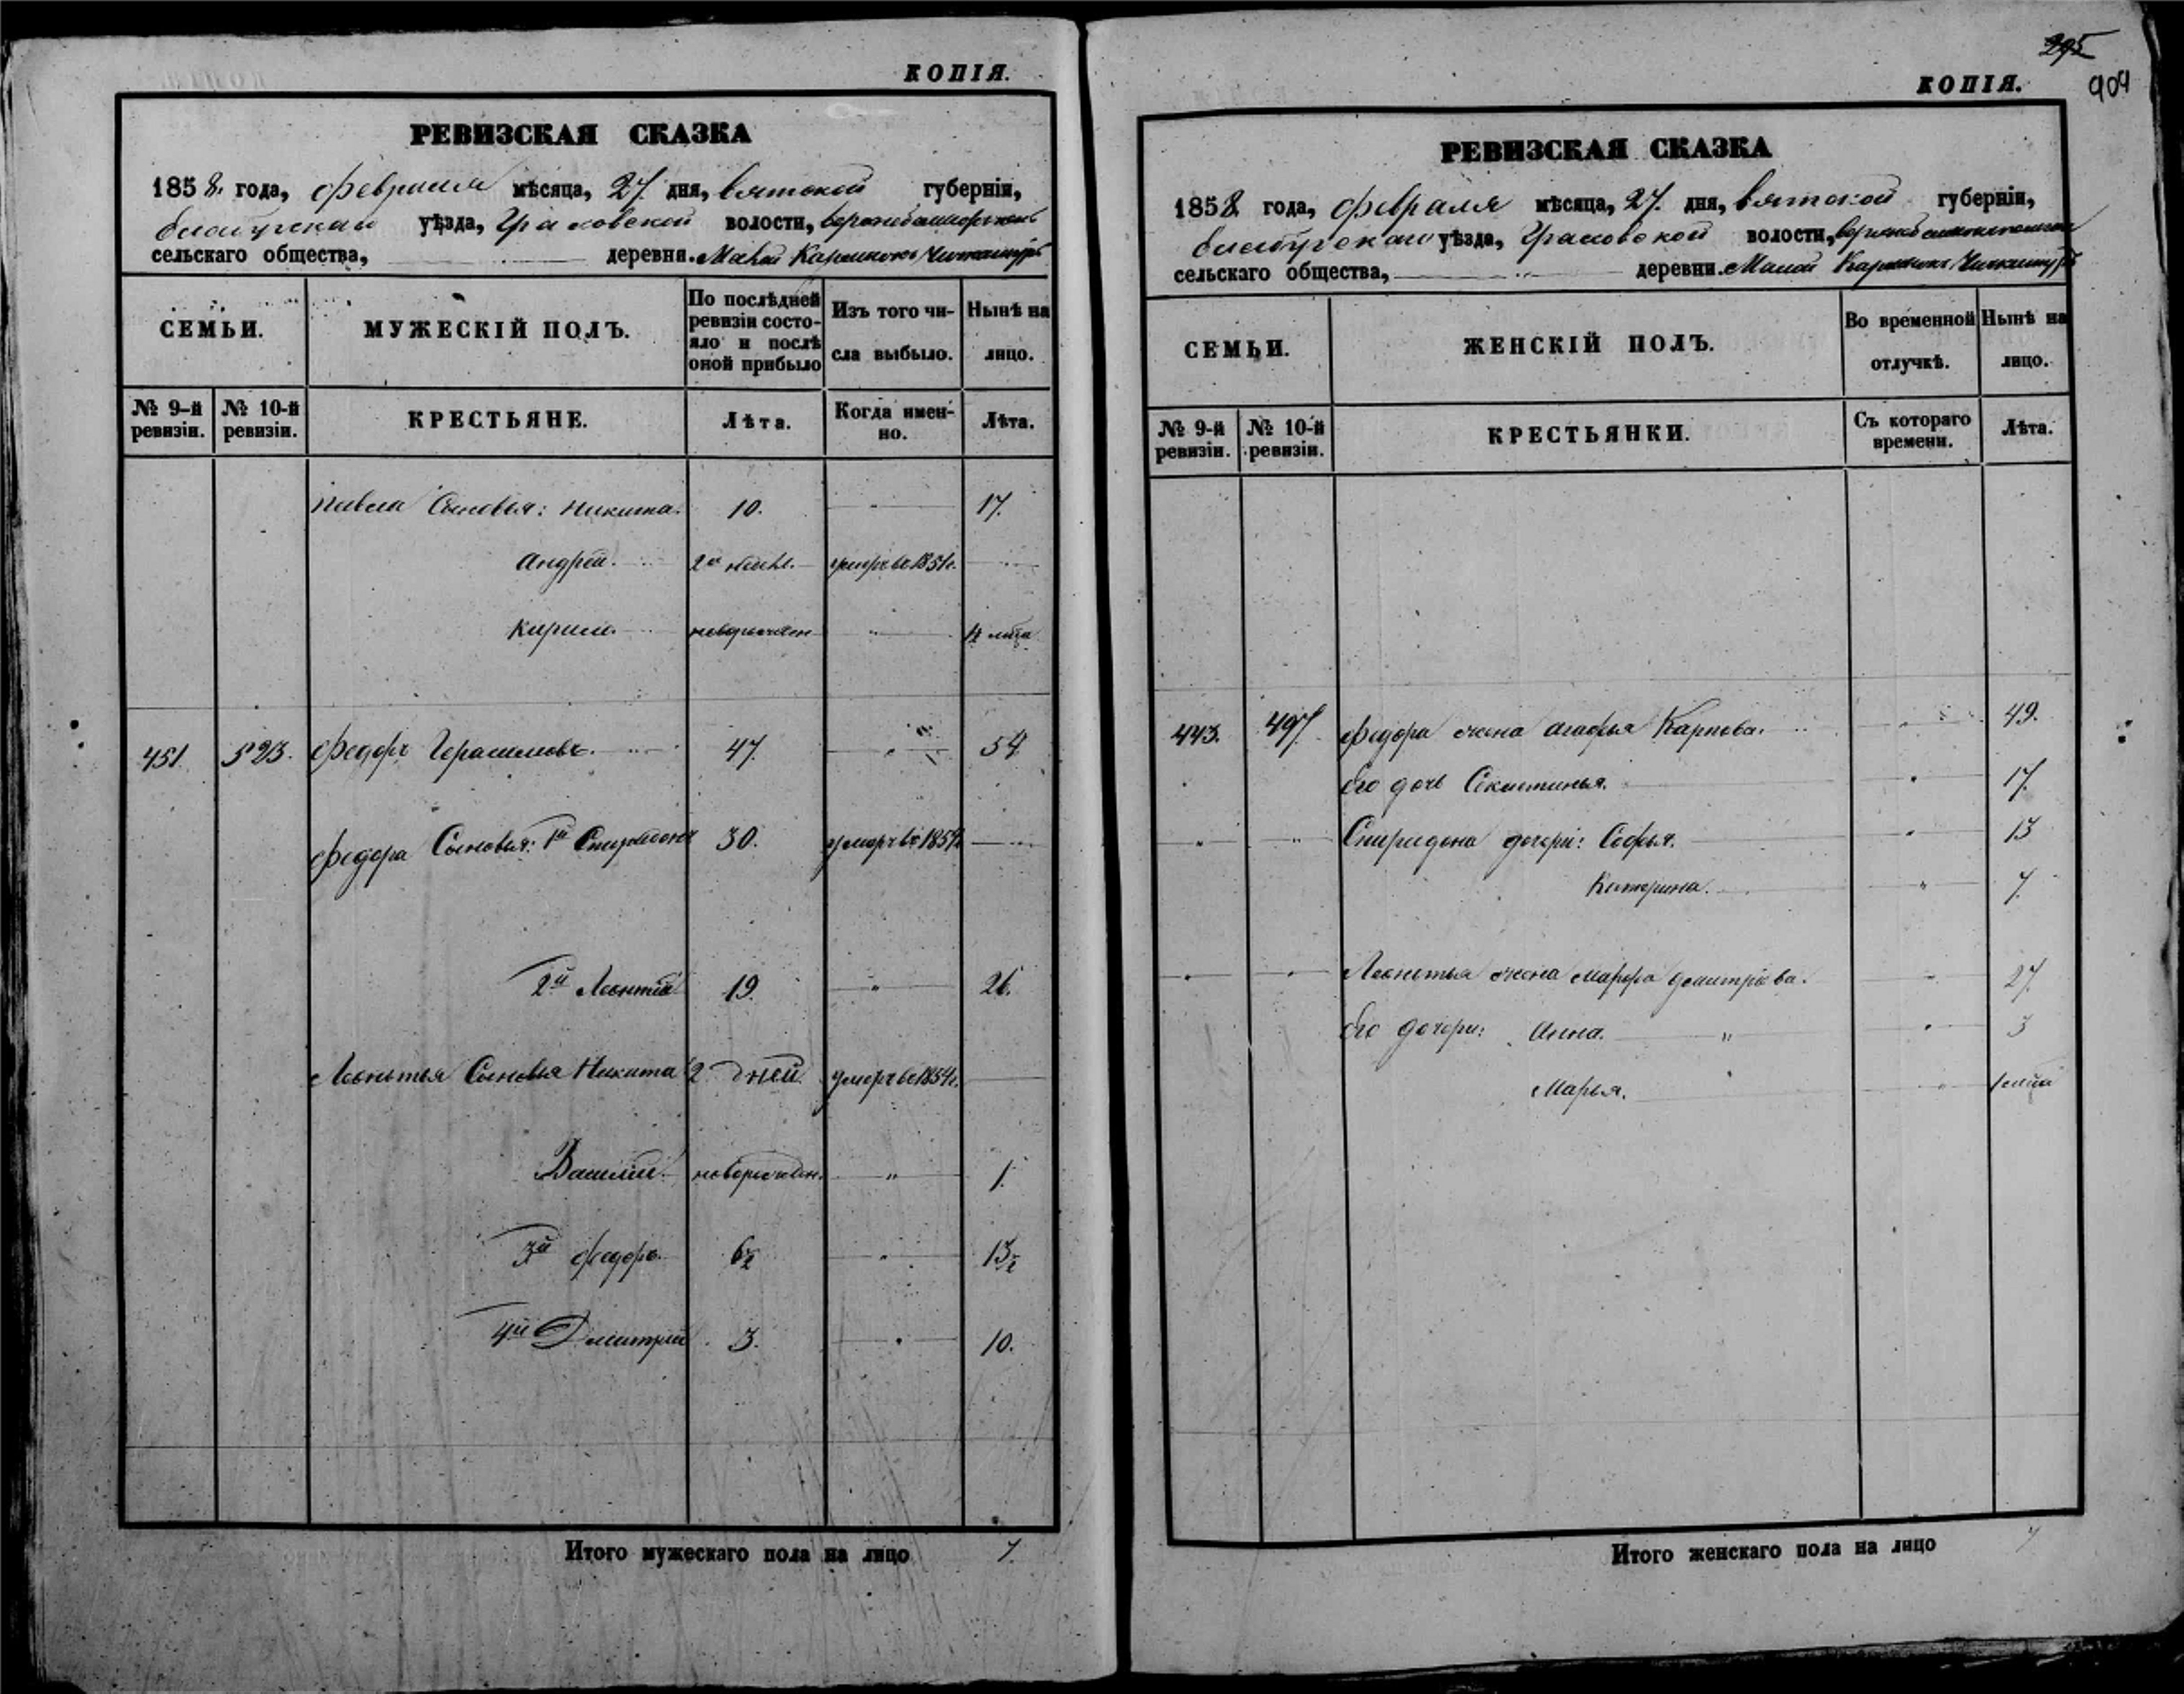 КОПІЯ.
РЕВИЗСКАЯ СКАЗКА
1858. года, февраля мѣсяца, 27. дня, Вятской губерніи,
уѣзда, волости,
сельскаго общества, деревни. Малой Чипкашуръ
СЕМЬИ.
МУЖЕСКІЙ ПОЛЪ.
По послѣдней ревизіи состояло и послѣ оной прибыло
Изъ того числа выбыло.
Нынѣ на лицо.
№ 9-й ревизіи.
№ 10-й ревизіи.
КРЕСТЬЯНЕ.
Лѣта.
Когда именно.
Лѣта.
Павла Сыновья: Никита. 10. 17.
Андрей. 2х умеръ въ 1851г.
Кирило. новорожден 4
451. 523. Федоръ Герасимовъ. 47. 54
Федора Сыновья: 1й Спиридонъ 30. умеръ въ 1854г.
2й Леонтій 19. 26.
Леонтья Сыновья Никита 2 дней умеръ въ 1851г.
Василій новорожден. 1.
3й Федоръ. 6½ 13½
4й Дмитрій 3. 10.
Итого мужескаго пола на лицо 7.
295
904
КОПІЯ.
РЕВИЗСКАЯ СКАЗКА
1858 года, февраля мѣсяца, 27. дня, Вятской губерніи,
уѣзда, волости,
сельскаго общества, деревни. Малой
СЕМЬИ.
ЖЕНСКІЙ ПОЛЪ.
Во временной отлучкѣ.
Нынѣ на лицо.
№ 9-й ревизіи.
№ 10-й ревизіи.
КРЕСТЬЯНКИ.
Съ котораго времени.
Лѣта.
443. 497. Федора жена Агафья Карпова. 49.
Его дочь Секлетинья. 17.
Спиридона дочери: Софья. 13
Катерина. 7.
Леонтья жена Марфа Дмитріева. 27.
Его дочери: Анна. 3
Марья. 1
Итого женскаго пола на лицо 7